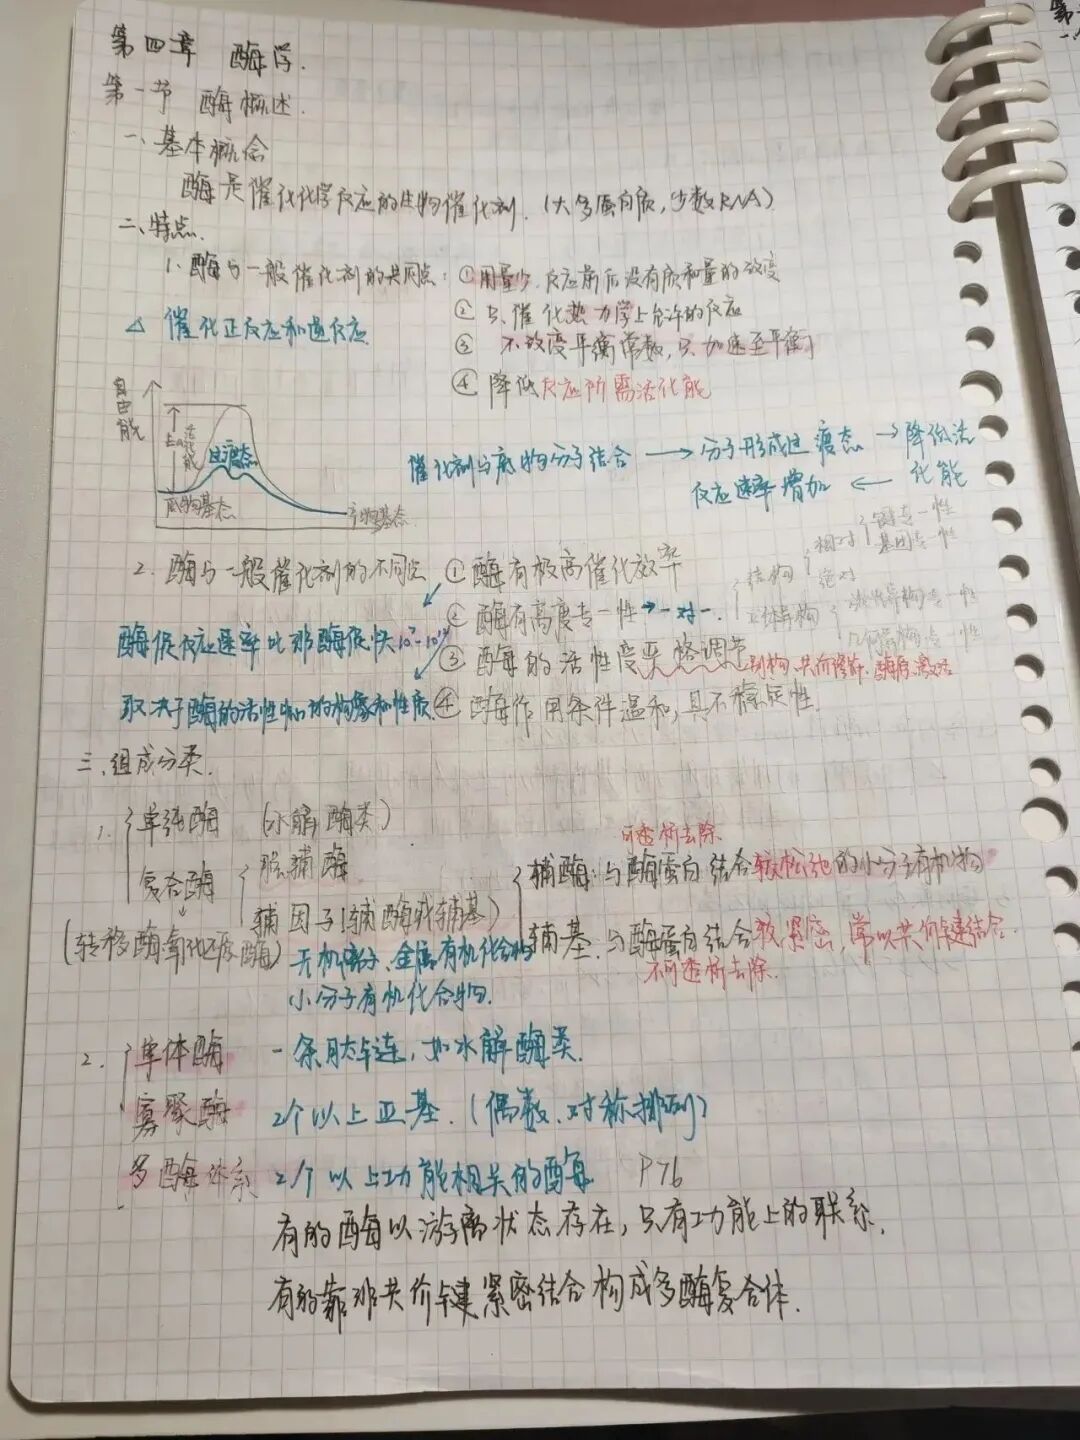 第四章 酶学.
第一节 酶概述.
一、基本概念
酶是催化化学反应的生物催化剂.(大多蛋白质,少数RNA)
二、特点.
1.酶与一般催化剂的共同点: ①用量少.反应前后没有质和量的改变
②只催化热力学上允许的反应
△ 催化正反应和逆反应
③ 不改变平衡常数,只加速至平衡
④降低反应所需活化能
自由能
Ea 活化能
过渡态
底物基态
产物基态
催化剂与底物分子结合 → 分子形成过渡态 → 降低活化能
反应速率增加 ←
2.酶与一般催化剂的不同点 ①酶有极高催化效率
②酶有高度专一性 → 一对一
结构 相对 键专一性
基团专一性
绝对
立体异构 旋光异构专一性
几何异构专一性
酶促反应速率比非酶促快
③酶的活性受严格调节 别构、共价修饰、酶原激活
取决于酶的活性中心的构象和性质
④酶作用条件温和,具不稳定性.
三、组成分类.
1. 单纯酶 (水解酶类)
复合酶 脱辅酶
辅因子(辅酶或辅基)
(转移酶、氧化还原酶)
无机离子、金属有机化合物
小分子有机化合物.
可透析去除
辅酶:与酶蛋白结合较松弛的小分子有机物
辅基.与酶蛋白结合较紧密,常以共价键结合.
不可透析去除.
2. 单体酶 一条肽链,如水解酶类.
寡聚酶 2个以上亚基.(偶数、对称排列)
多酶体系 2个以上功能相关的酶 P76
有的酶以游离状态存在,只有功能上的联系.
有的靠非共价键紧密结合构成多酶复合体.